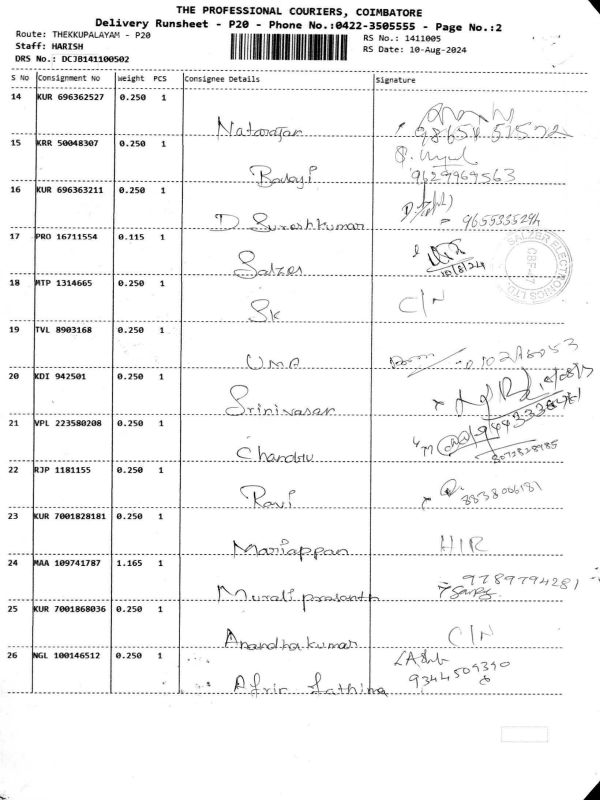 THE PROFESSIONAL COURIERS, COIMBATORE
Delivery Runsheet - P20 - Phone No.:0422-3505555 - Page No.:2
Route: THEKKUPALAYAM - P20
Staff: HARISH
DRS No.: DCJB141100502
RS No.: 1411005
RS Date: 10-Aug-2024
S No Consignment No Weight PCS Consignee Details Signature
14 KUR 696362527 0.250 1
Natarajan
15 KRR 50048307 0.250 1
Balaji 9629969563
16 KUR 696363211 0.250 1
D Sureshkumar
17 PRO 16711554 0.115 1
Salzer 10/8/24
SALZER ELECTRONICS LTD.
18 MTP 1314665 0.250 1
Sk C/N
19 TVL 8903168 0.250 1
UMA
20 KDI 942501 0.250 1
Srinivasan
21 VPL 223580208 0.250 1
Chandru
22 RJP 1181155 0.250 1
Ravi 8838006181
23 KUR 7001828181 0.250 1
Mariappan HIR
24 MAA 109741787 1.165 1
Murali prasanth 9789794281
25 KUR 7001868036 0.250 1
Anandhakumar C/N
26 NGL 100146512 0.250 1
9344509390